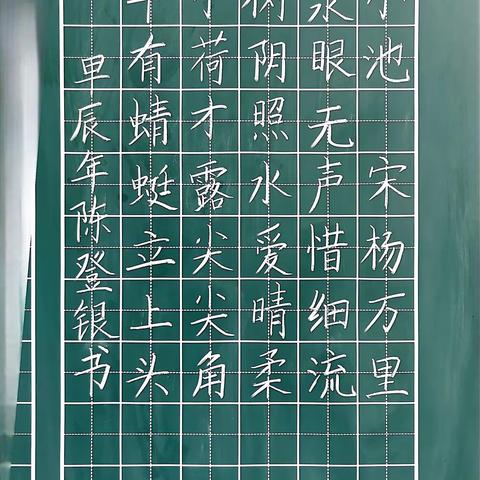 小池 宋杨万里
泉眼无声惜细流
树阴照水爱晴柔
小荷才露尖尖角
早有蜻蜓立上头
甲辰年陈登银书